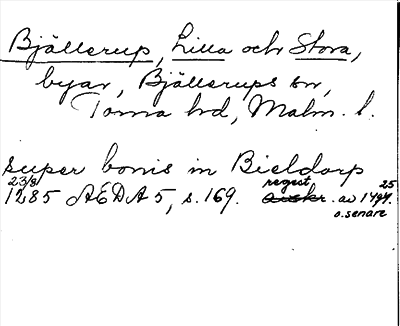 Bjällerup, Lilla och Stora,
byar, Bjällerups sn,
Torna hd, Malm. l.
super bonis in Bieldorp
23/8 regest 25
1285 ÆDA 5, s. 169. avskr. av 1494.
o. senare